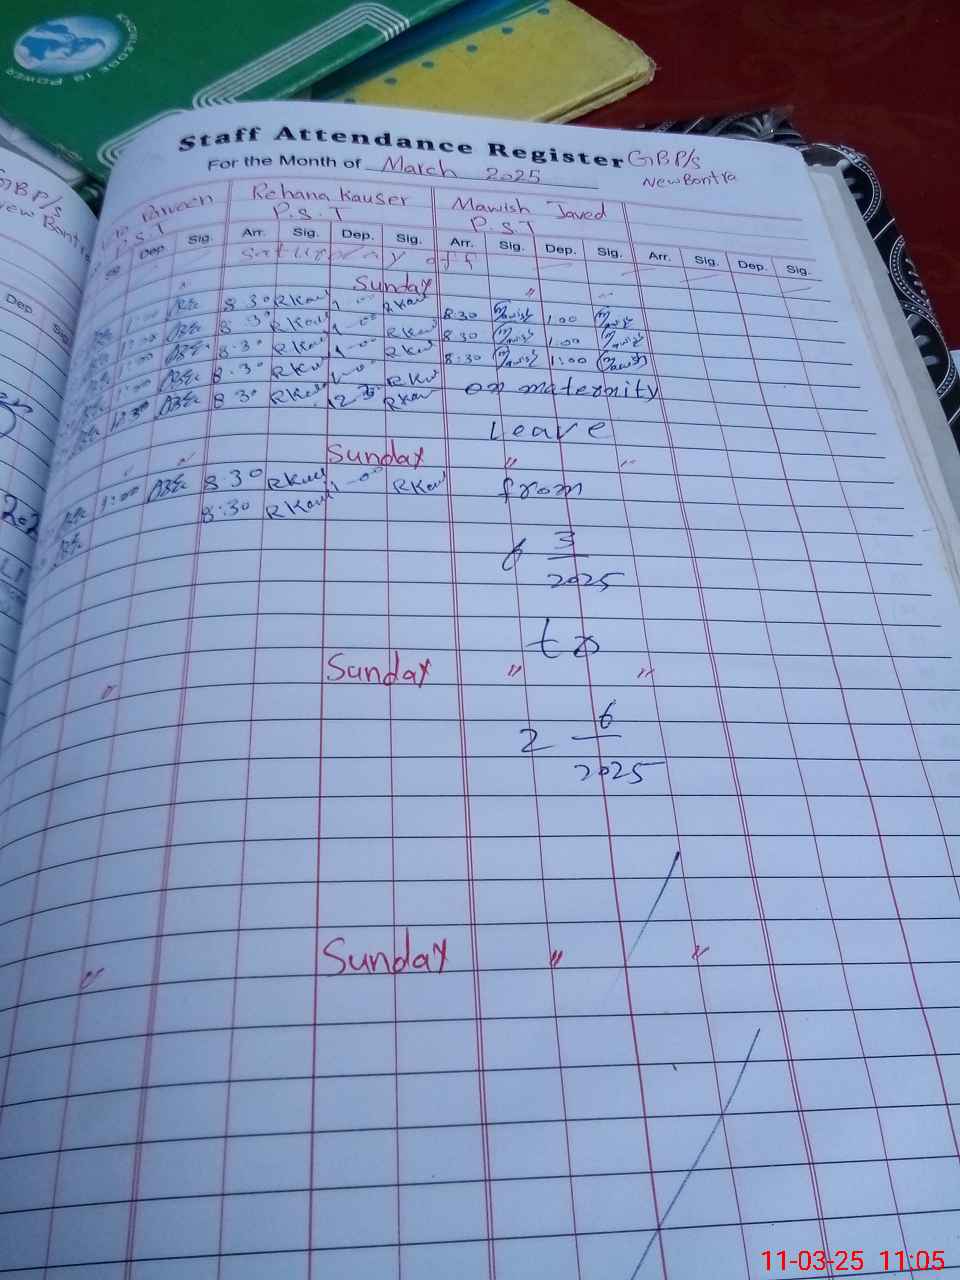 KNOWLEDGE IS POWER
Staff Attendance Register GBP/s
For the Month of March 2025 New Bontra
Parveen Rehana Kauser Mawish Javed
P.S.T P.S.T P.S.T
Dep. Sig. Arr. Sig. Dep. Sig. Arr. Sig. Dep. Sig. Arr. Sig. Dep. Sig.
Saturday off
Sunday " "
1:00 8:30 RKau 1-00 RKau 8:30 Mawish 1:00 Mawish
8:30 RKau 1-00 RKau 8:30 Mawish 1:00 Mawish
1:00 8:30 RKau 1-00 RKau 8:30 Mawish 1:00 Mawish
1:00 8:30 RKau 1-00 RKau on maternity
12:30 8:30 RKau 12-30 RKau Leave
Sunday " "
1:00 8:30 RKau 1-00 RKau from
8:30 RKau
6 3
2025
to
" Sunday " "
2 6
2025
" Sunday " "
GBP/s
New Bontra
Dep Sig
11-03-25 11:05